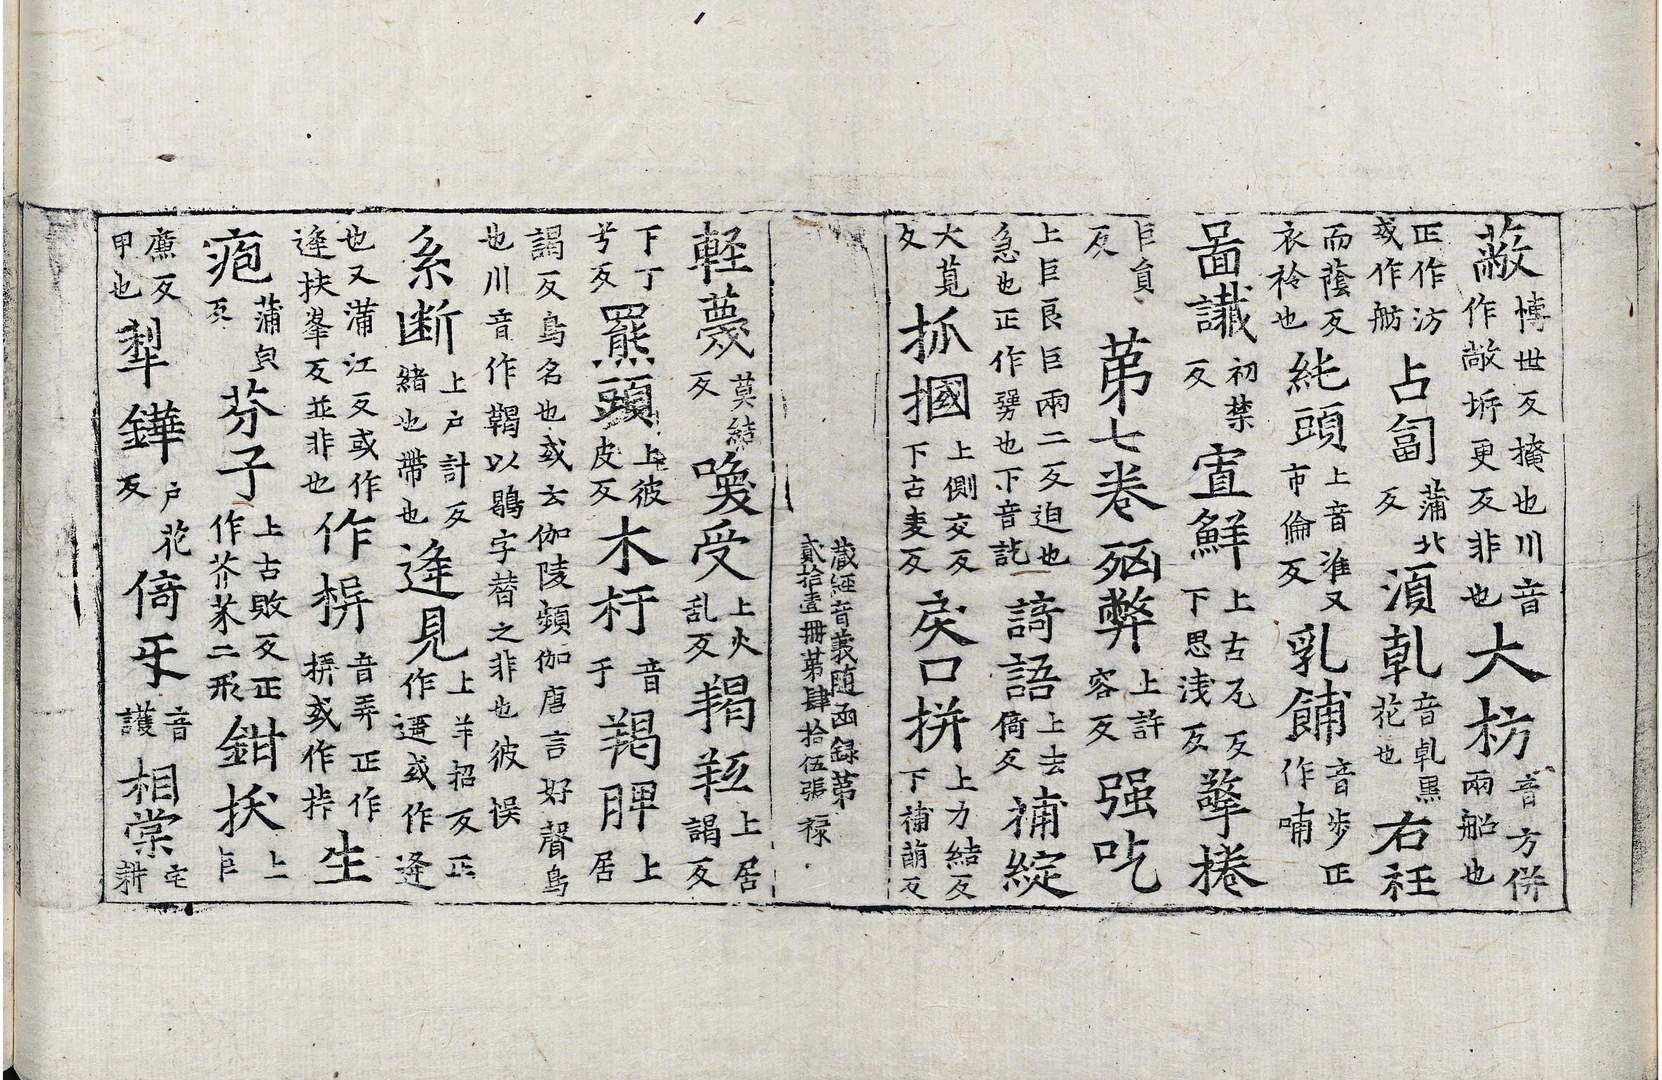 蔽博世反掩也川音作敞坼更反非也大枋音方併兩船也
正作汸或作舫占匐蒲北反湏乹音乹黒花也右衽
而蔭反衣衿也純頭上音准又市倫反乳餔音步正作哺
啚讖初禁反寘鮮上古瓦反下思浅反擎捲
巨負反第七卷殈弊上許容反强吃
上巨良巨兩二反迫也急也正作彊也下音訖䛴語上去倚反補綻
大莧反抓摑上側交反下古麦反戾口拼上力結反下補萠反
藏經音義随函録第貳拾壹冊第肆拾伍張 禄
軽蔑莫結反喚受上火乱反羯羫上居謁反
下丁兮反羆頭上彼皮反木杅音于羯脾上居
謁反鳥名也或云伽陵頻伽唐言好聲鳥也川音作鞨以鶡字替之非也彼悮
系断上戸計反緒也帶也逄見上羊招反正作遻或作逄
也又蒲江反或作逄扶峯反並非也作栟音弄正作挵或作挊生
疱蒲皃反芥子上古敗反正作芥䒶二形鉗扷上巨
廉反甲也犁鏵戸花反倚㸦音護相棠宅耕